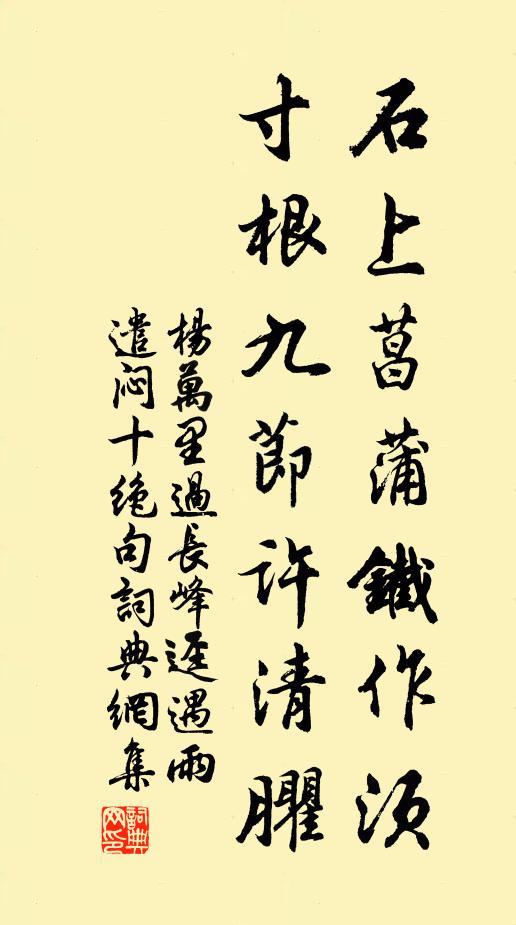 石上菖蒲鐵作須
寸根九節許清臞
楊萬里過長峰逕遇雨
遣悶十絕句詞典網集
詞典
网印